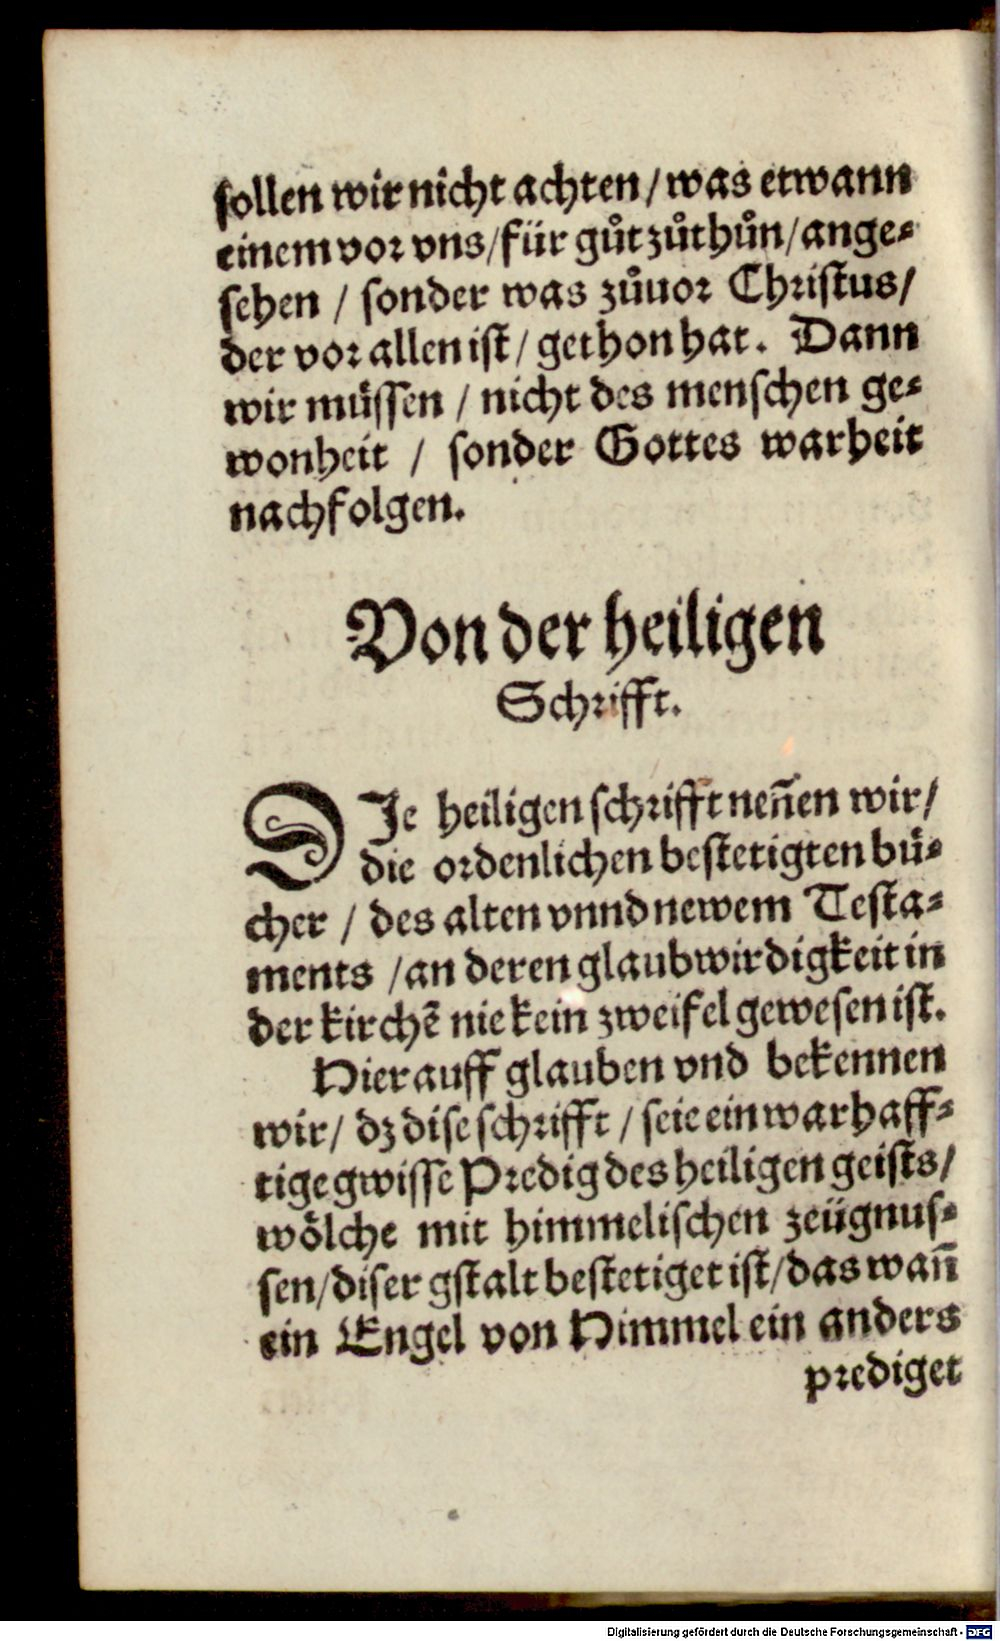 sollen wir nicht achten / was etwann
einem vor vns / für gůt zůthůn / ange⸗
sehen / sonder was zůuor Christus /
der vor allen ist / gethon hat. Dann
wir müssen / nicht des menschen ge⸗
wonheit / sonder Gottes warheit
nachfolgen.
Von der heiligen
Schrifft.
DIe heiligen schrifft nen̄en wir /
die ordenlichen bestetigten bü⸗
cher / des alten vnnd newem Testa⸗
ments / an deren glaubwirdigkeit in
der kirchē nie kein zweifel gewesen ist.
Hierauff glauben vnd bekennen
wir / dz dise schrifft / seie ein warhaff⸗
tige gwisse Predig des heiligen geists /
wölche mit himmelischen zeügnus⸗
sen / diser gstalt bestetiget ist / das wan̄
ein Engel von Himmel ein anders
prediget
Digitalisierung gefördert durch die Deutsche Forschungsgemeinschaft - DFG